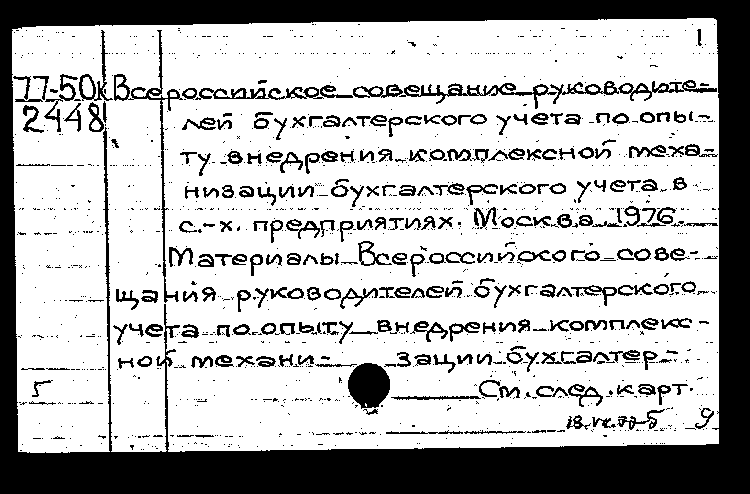 1
77-50к Всероссийское совещание руководите-
2448 лей бухгалтерского учета по опы-
ту внедрения комплексной меха-
низации бухгалтерского учета в
с.-х. предприятиях. Москва 1976.
Материалы Всероссийского сове-
щания руководителей бухгалтерского
учета по опыту внедрения комплекс-
ной механи- зации бухгалтер-
5 См. след. карт.
9